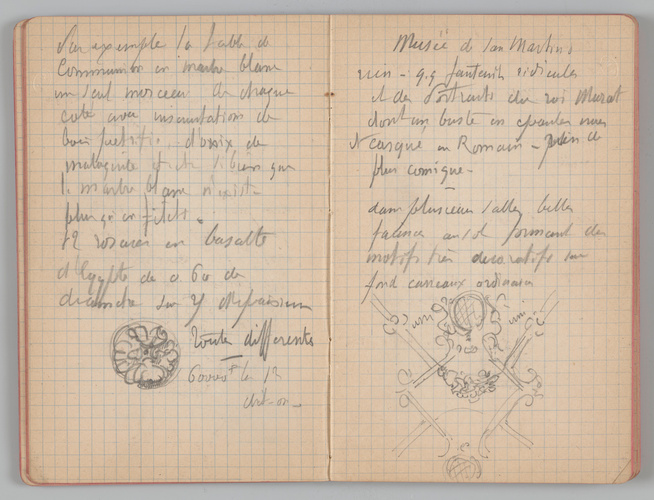 Par exemple la table de
Communion en marbre blanc
un seul morceau de chaque
coté avec incrustations de
bois pétrifié, d'onix de
malaquite et si bien que
le marbre blanc n'existe
plus qu'en filets.
12 rosaces en basalte
d'Egypte de 0 60 de
diametre sur 7 d'épaisseur
Toutes différentes
600 les 12
dit-on -
Musée de San Martino
rien - q.q fauteuils ridicules
et des Portraits du roi Murat
dont un buste en épaules nues
et casqué en Romain - rien de
plus comique -
dans plusieurs salles belles
faiences au sol formant des
motifs très décoratifs sur
fond carreaux ordinaires
uni
uni